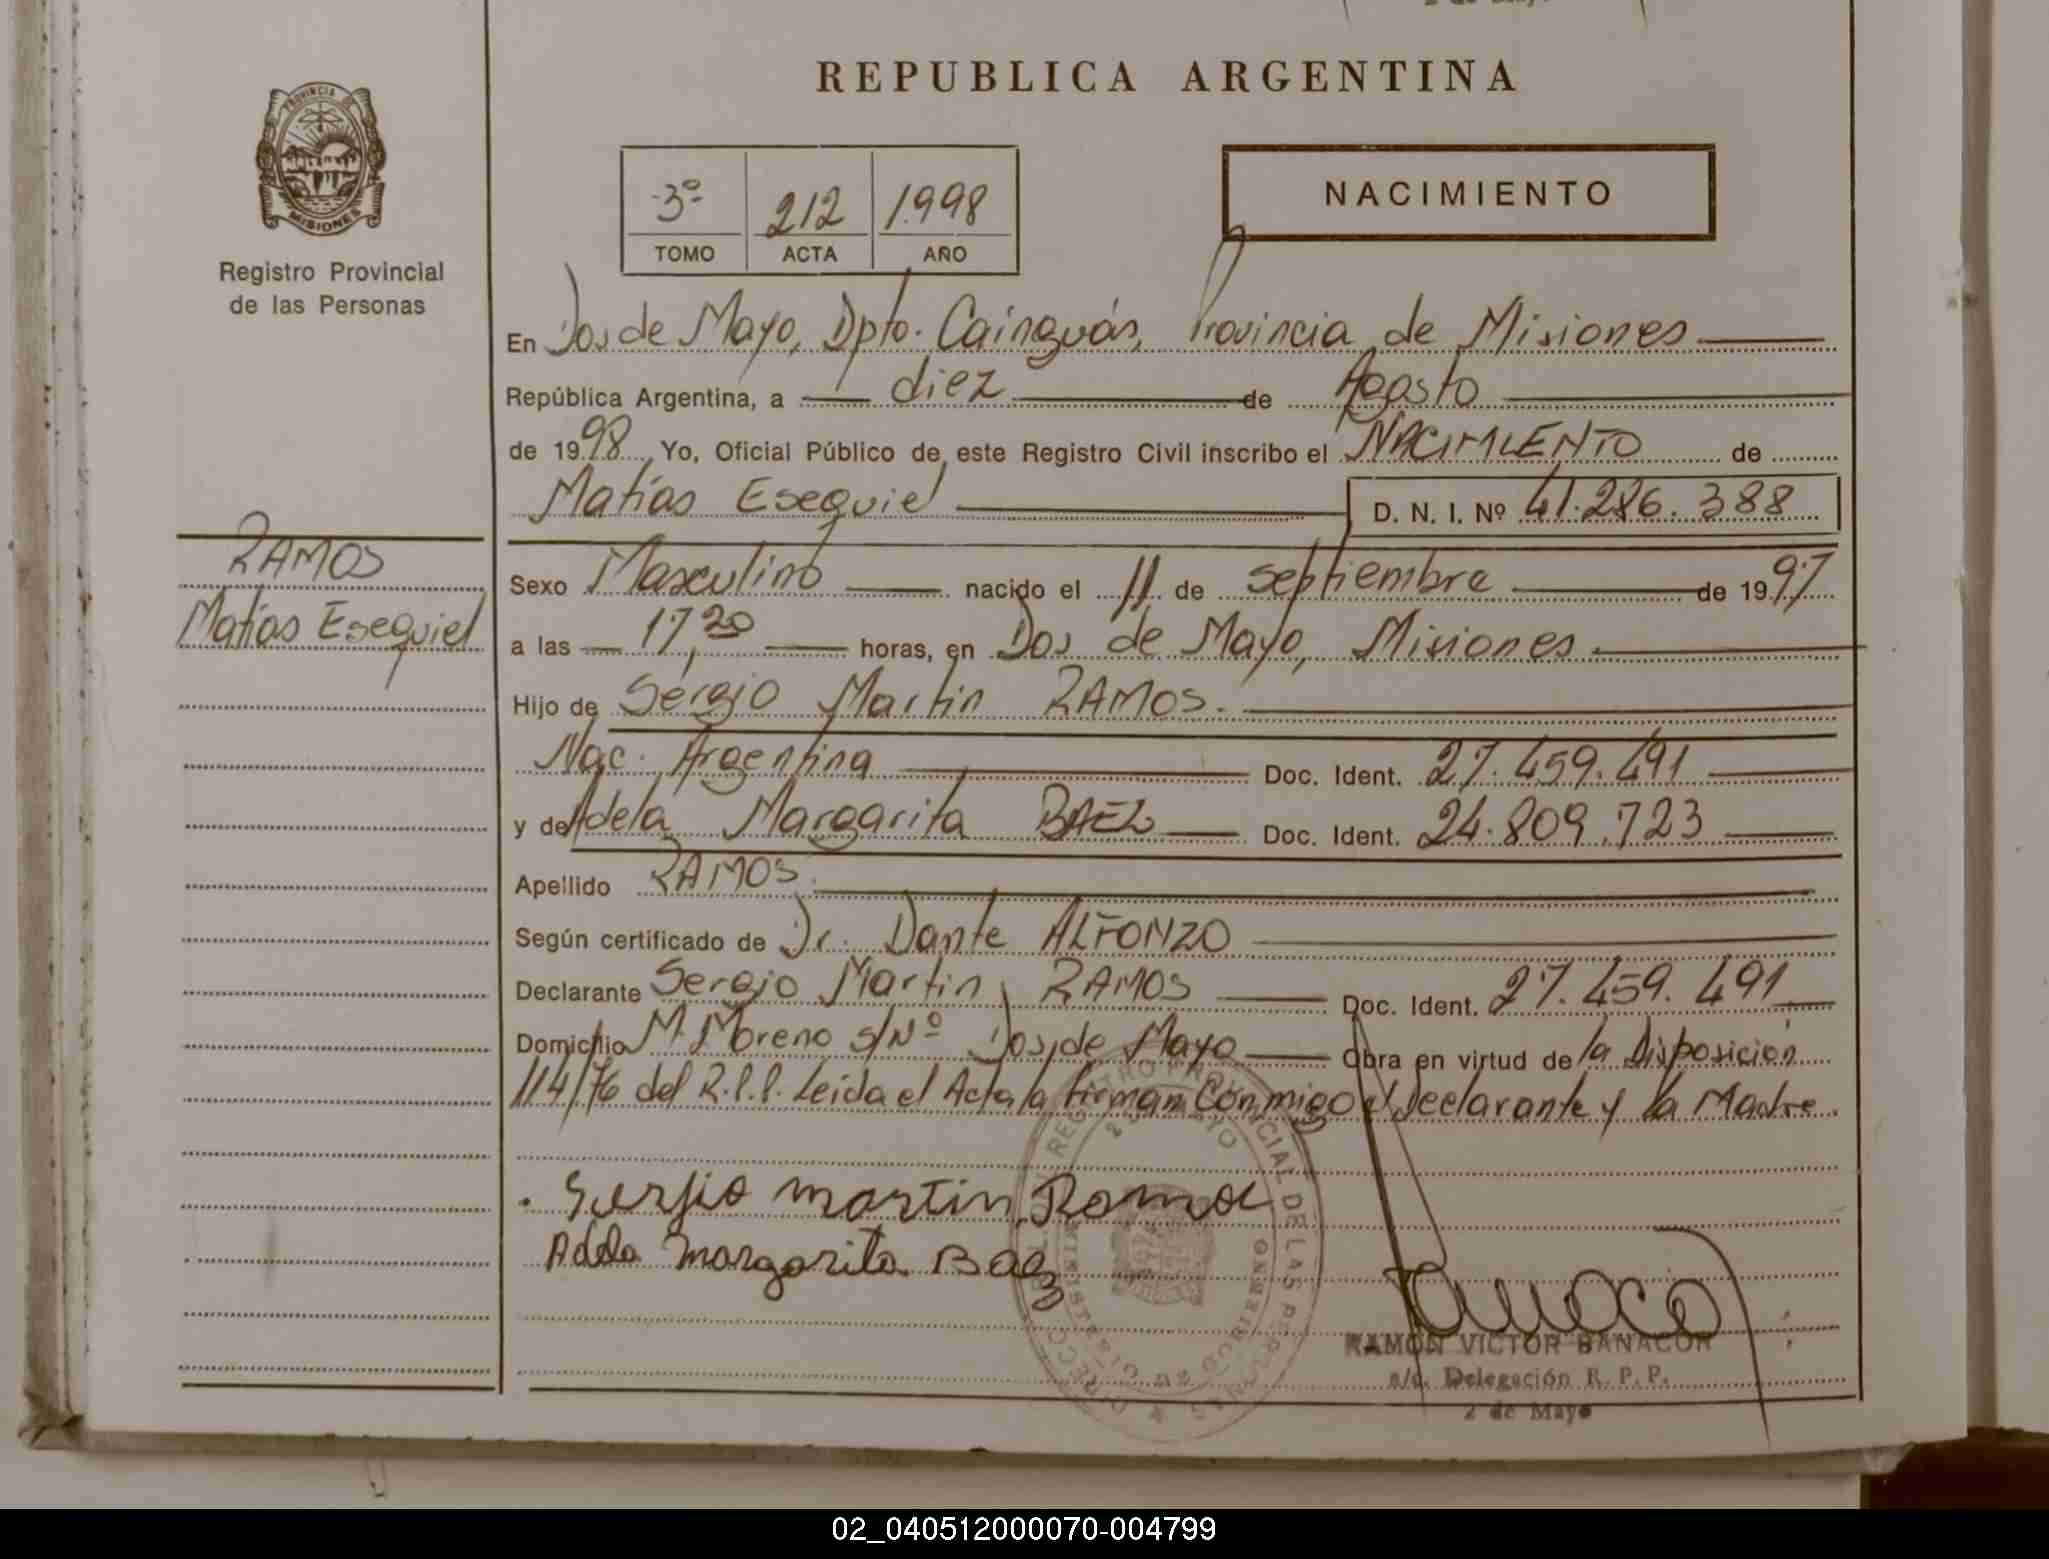 REPUBLICA ARGENTINA
PROVINCIA DE
MISIONES
Registro Provincial
de las Personas
3º 212 1998
TOMO ACTA AÑO
NACIMIENTO
En Dos de Mayo, Dpto. Cainguás, Provincia de Misiones
República Argentina, a diez de Agosto
de 1998 Yo, Oficial Público de este Registro Civil inscribo el NACIMIENTO de
Matías Esequiel D. N. I. Nº 41.286.388
RAMOS
Matías Esequiel
Sexo Masculino nacido el 11 de septiembre de 1997
a las 17,20 horas, en Dos de Mayo, Misiones
Hijo de Sergio Martin RAMOS.
Nac. Argentina Doc. Ident. 27.459.491
y de Adela Margarita BAEZ Doc. Ident. 24.809.723
Apellido RAMOS.
Según certificado de Dr. Dante ALFONZO
Declarante Sergio Martin RAMOS Doc. Ident. 27.459.491
Domicilio M. Moreno S/Nº Dos de Mayo Obra en virtud de la Disposición
114/76 del R.P.P. Leida el Acta la firman Conmigo el Declarante y la Madre.
Sergio martin Ramos
Adela margarita Baez
RAMON VICTOR BANACOR
a/c. Delegación R. P. P.
2 de Mayo
02_040512000070-004799